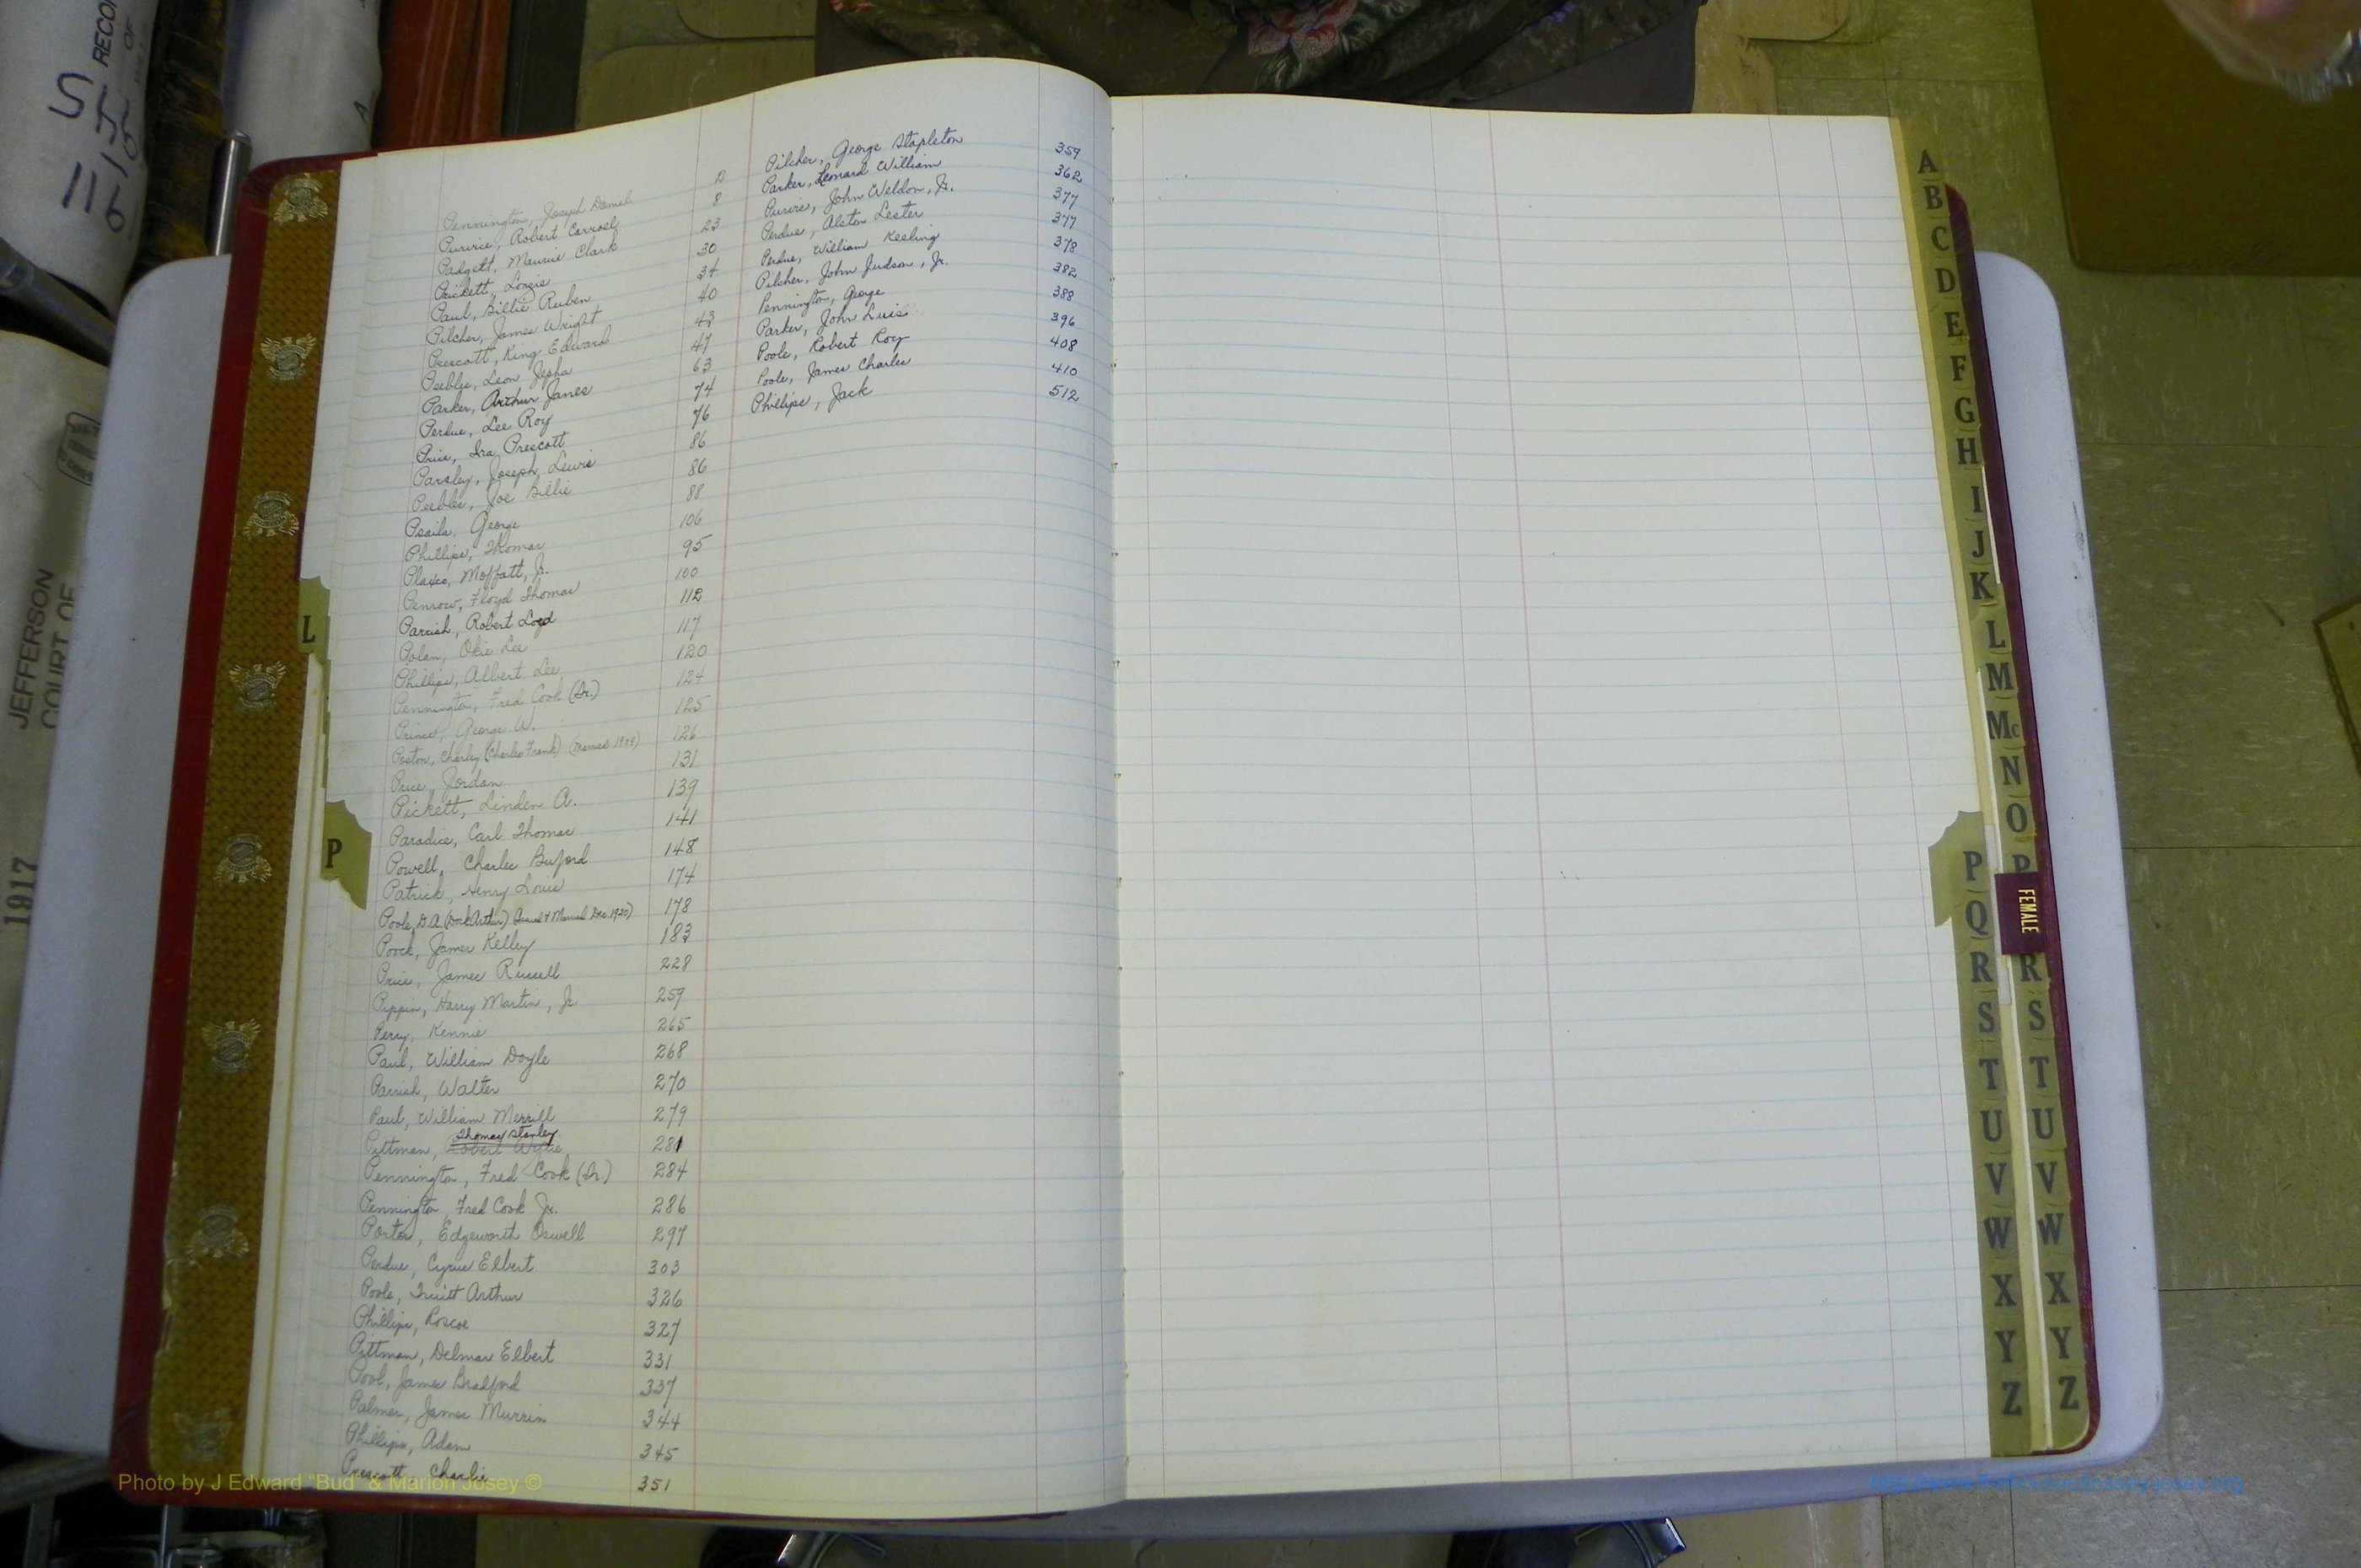 Pennington, Joseph Daniel 2
Purvis, Robert Carrol 8
Padgett, Maurice Clark 23
Prickett, Lonzie 30
Paul, Billie Ruben 34
Pilcher, James Wright 40
Prescott, King Edward 43
Peebles, Leon Jepha 47
Parker, Arthur James 63
Perdue, Lee Roy 74
Price, Ira Prescott 76
Parsley, Joseph Lewis 86
Peebles, Joe Billie 86
Psaila, George 88
Phillips, Thomas 106
Plaxco, Moffatt, Jr. 95
Penrow, Floyd Thomas 100
Parrish, Robert Loyd 112
Polan, Okie Lee 117
Phillips, Albert Lee 120
Pennington, Fred Cook (Sr.) 124
Prince, George W. 125
Poston, Charley (Charles Frank) (Married 1908) 126
Price, Jordan 131
Pickett, Linden A. 139
Paradice, Carl Thomas 141
Powell, Charles Buford 148
Patrick, Henry Louis 174
Poole, D.A. (Dock Arthur) Married Dec. 1920) 178
Poock, James Kelley 183
Price, James Russell 228
Pippin, Harry Martin, Jr. 259
Perry, Kennie 265
Paul, William Doyle 268
Parrish, Walter 270
Paul, William Merrill 279
Thomas Stanley
Pittman, Robert Wylie 281
Pennington, Fred Cook (Sr.) 284
Pennington, Fred Cook Jr. 286
Porter, Edgeworth Oswell 297
Perdue, Cyrus Elbert 303
Poole, Truitt Arthur 326
Phillips, Roscoe 327
Pittman, Delmar Elbert 331
Pool, James Bradford 337
Palmer, James Murrin 344
Phillips, Adam 345
Prescott, Charlie 351
Pilcher, George Stapleton 359
Parker, Leonard William 362
Purvis, John Weldon, Jr. 377
Perdue, Alston Lester 377
Perdue, William Kesling 378
Pilcher, John Judson, Jr. 382
Pennington, George 388
Parker, John Luis 396
Poole, Robert Roy 408
Poole, James Charles 410
Phillips, Jack 512
L
P
A
B
C
D
E
F
G
H
I
J
K
L
M
Mc
N
O
P
P
Q
FEMALE
R
R
S
S
T
T
U
U
V
V
W
W
X
X
Y
Y
Z
Z
JEFFERSON
COURT OF
1917
Photo by J Edward "Bud" & Marion Josey ©